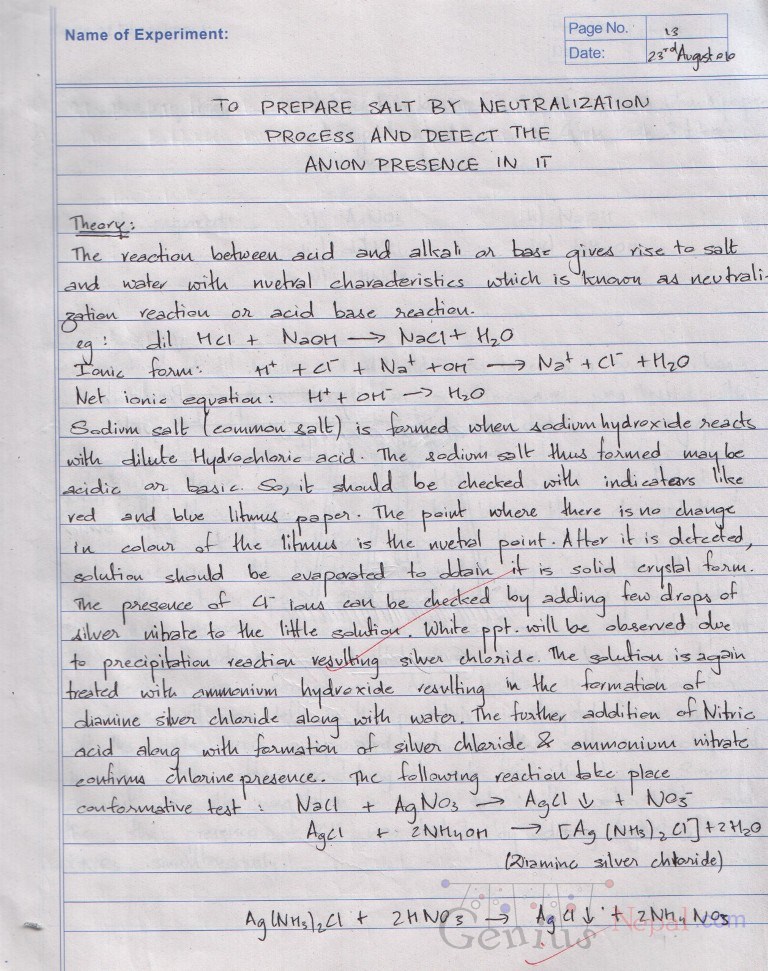 Name of Experiment:
Page No. 13
Date: 23rd August
TO PREPARE SALT BY NEUTRALIZATION
PROCESS AND DETECT THE
ANION PRESENCE IN IT
Theory:
The reaction between acid and alkali or base gives rise to salt
and water with nuetral characteristics which is known as neutrali-
zation reaction or acid base reaction.
eg : dil HCl + NaOH → NaCl + H₂O
Ionic form: H⁺ + Cl⁻ + Na⁺ + OH⁻ → Na⁺ + Cl⁻ + H₂O
Net ionic equation : H⁺ + OH⁻ → H₂O
Sodium salt (common salt) is formed when sodium hydroxide reacts
with dilute Hydrochloric acid. The sodium salt thus formed may be
acidic or basic. So, it should be checked with indicators like
red and blue litmus paper. The point where there is no change
in colour of the litmus is the nuetral point. After it is detected,
solution should be evaporated to obtain it is solid crystal form.
The presence of Cl⁻ ions can be checked by adding few drops of
silver nitrate to the little solution. White ppt. will be observed due
to precipitation reaction resulting silver chloride. The solution is again
treated with ammonium hydroxide resulting in the formation of
diamine silver chloride along with water. The further addition of Nitric
acid along with formation of silver chloride & ammonium nitrate
confirms chlorine presence. The following reaction take place
conformative test : NaCl + AgNO₃ → AgCl ↓ + NO₃⁻
AgCl + 2NH₄OH → [Ag (NH₃)₂ Cl] + 2H₂O
(Diamine silver chloride)
Ag(NH₃)₂Cl + 2HNO₃ → AgCl ↓ + 2NH₄NO₃
Genius Nepal.com